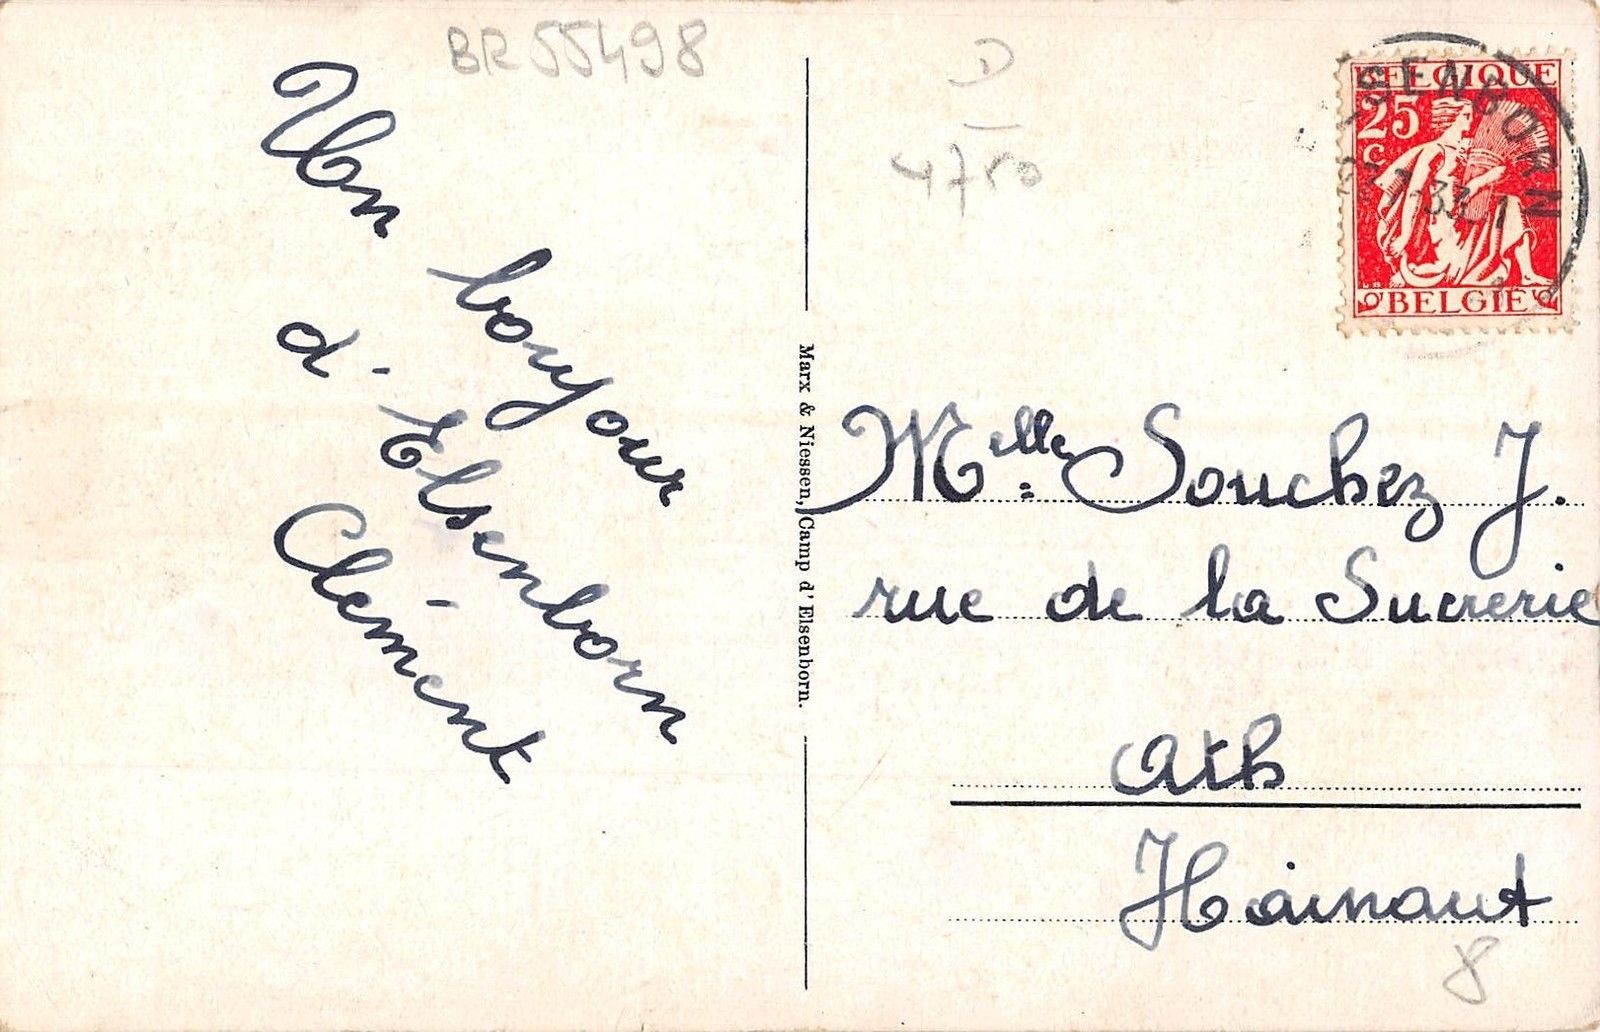 BR55498
Un bonjour
d'Elsenborn
Clément
Marx & Niessen, Camp d'Elsenborn.
D
4750
BELGIQUE
25
C
BELGIË
SENBORN
33
Melle: Souchez J.
rue de la Sucrerie
Ath
Hainaut
8